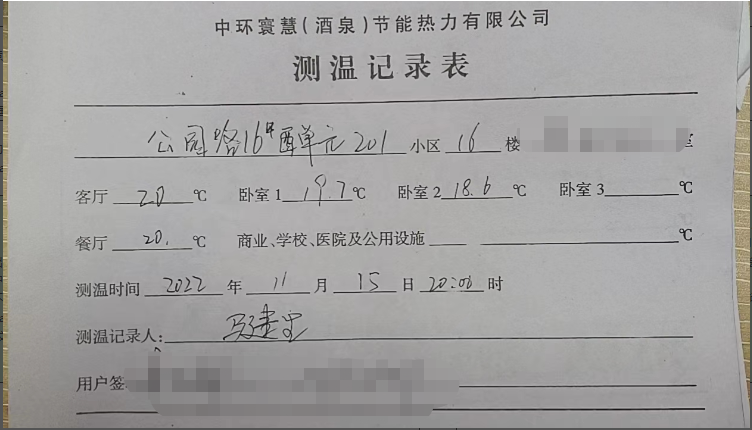 中环寰慧(酒泉)节能热力有限公司
测温记录表
公园路16#西单元201小区 16 楼 室
客厅 20 ℃ 卧室1 19.7 ℃ 卧室2 18.6 ℃ 卧室3 ℃
餐厅 20. ℃ 商业、学校、医院及公用设施 ℃
测温时间 2022 年 11 月 15 日 20:00 时
测温记录人:
用户签